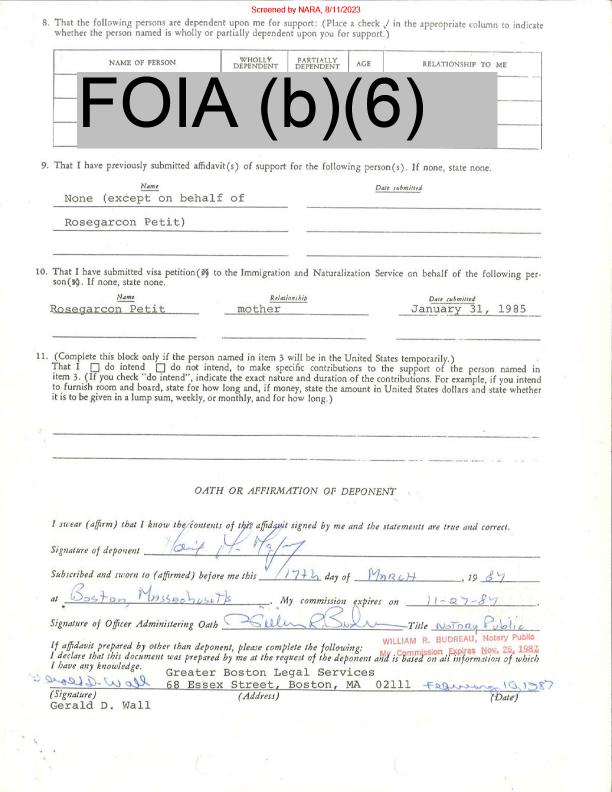 Screened by NARA, 8/11/2023
8. That the following persons are dependent upon me for support: (Place a check √ in the appropriate column to indicate
whether the person named is wholly or partially dependent upon you for support.)
NAME OF PERSON WHOLLY DEPENDENT PARTIALLY DEPENDENT AGE RELATIONSHIP TO ME
FOIA (b)(6)
9. That I have previously submitted affidavit(s) of support for the following person(s). If none, state none.
Name Date submitted
None (except on behalf of
Rosegarcon Petit)
10. That I have submitted visa petition(s) to the Immigration and Naturalization Service on behalf of the following per-
son(s). If none, state none.
Name Relationship Date submitted
Rosegarcon Petit mother January 31, 1985
11. (Complete this block only if the person named in item 3 will be in the United States temporarily.)
That I ☐ do intend ☐ do not intend, to make specific contributions to the support of the person named in
item 3. (If you check "do intend", indicate the exact nature and duration of the contributions. For example, if you intend
to furnish room and board, state for how long and, if money, state the amount in United States dollars and state whether
it is to be given in a lump sum, weekly, or monthly, and for how long.)
OATH OR AFFIRMATION OF DEPONENT
I swear (affirm) that I know the contents of this affidavit signed by me and the statements are true and correct.
Signature of deponent
Subscribed and sworn to (affirmed) before me this 17th day of MARCH, 19 87
at Boston, Massachusetts. My commission expires on 11-27-87
Signature of Officer Administering Oath William R. Budreau Title NOTARY Public
WILLIAM R. BUDREAU, Notary Public
If affidavit prepared by other than deponent, please complete the following:
My Commission Expires Nov. 26, 1987
I declare that this document was prepared by me at the request of the deponent and is based on all information of which
I have any knowledge.
Greater Boston Legal Services
Gerald D. Wall 68 Essex Street, Boston, MA 02111 February 10, 1987
(Signature) (Address) (Date)
Gerald D. Wall